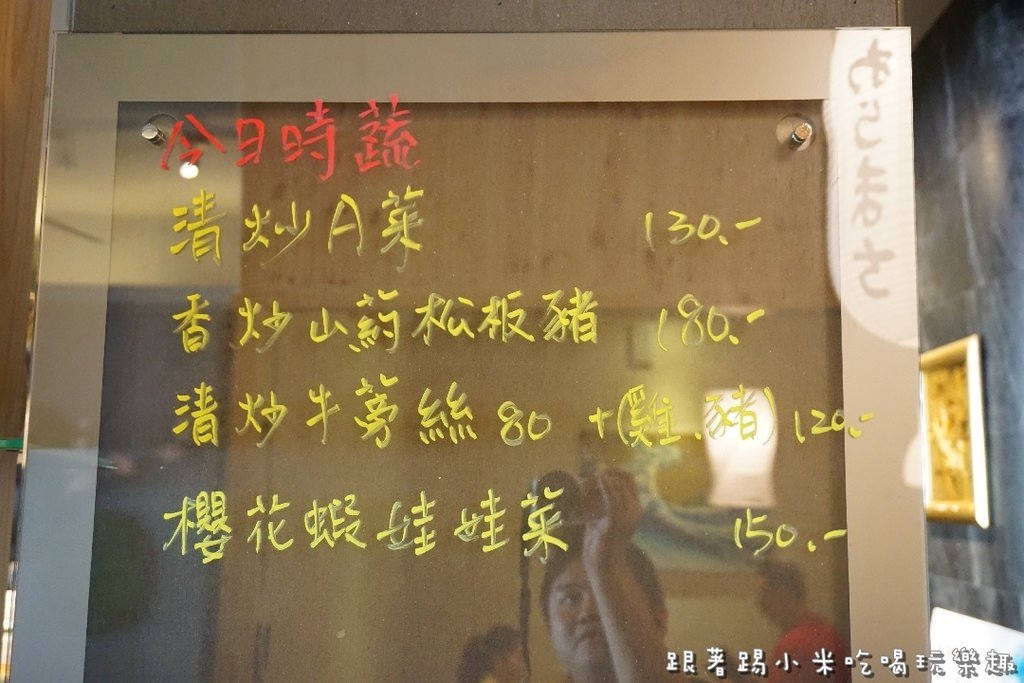 今日時蔬
清炒A菜 130.-
香炒山药松板豬 180.-
清炒牛蒡絲 80 +(雞、豬) 120.-
櫻花蝦娃娃菜 150.-
あらまさ
跟著踢小米吃喝玩樂趣